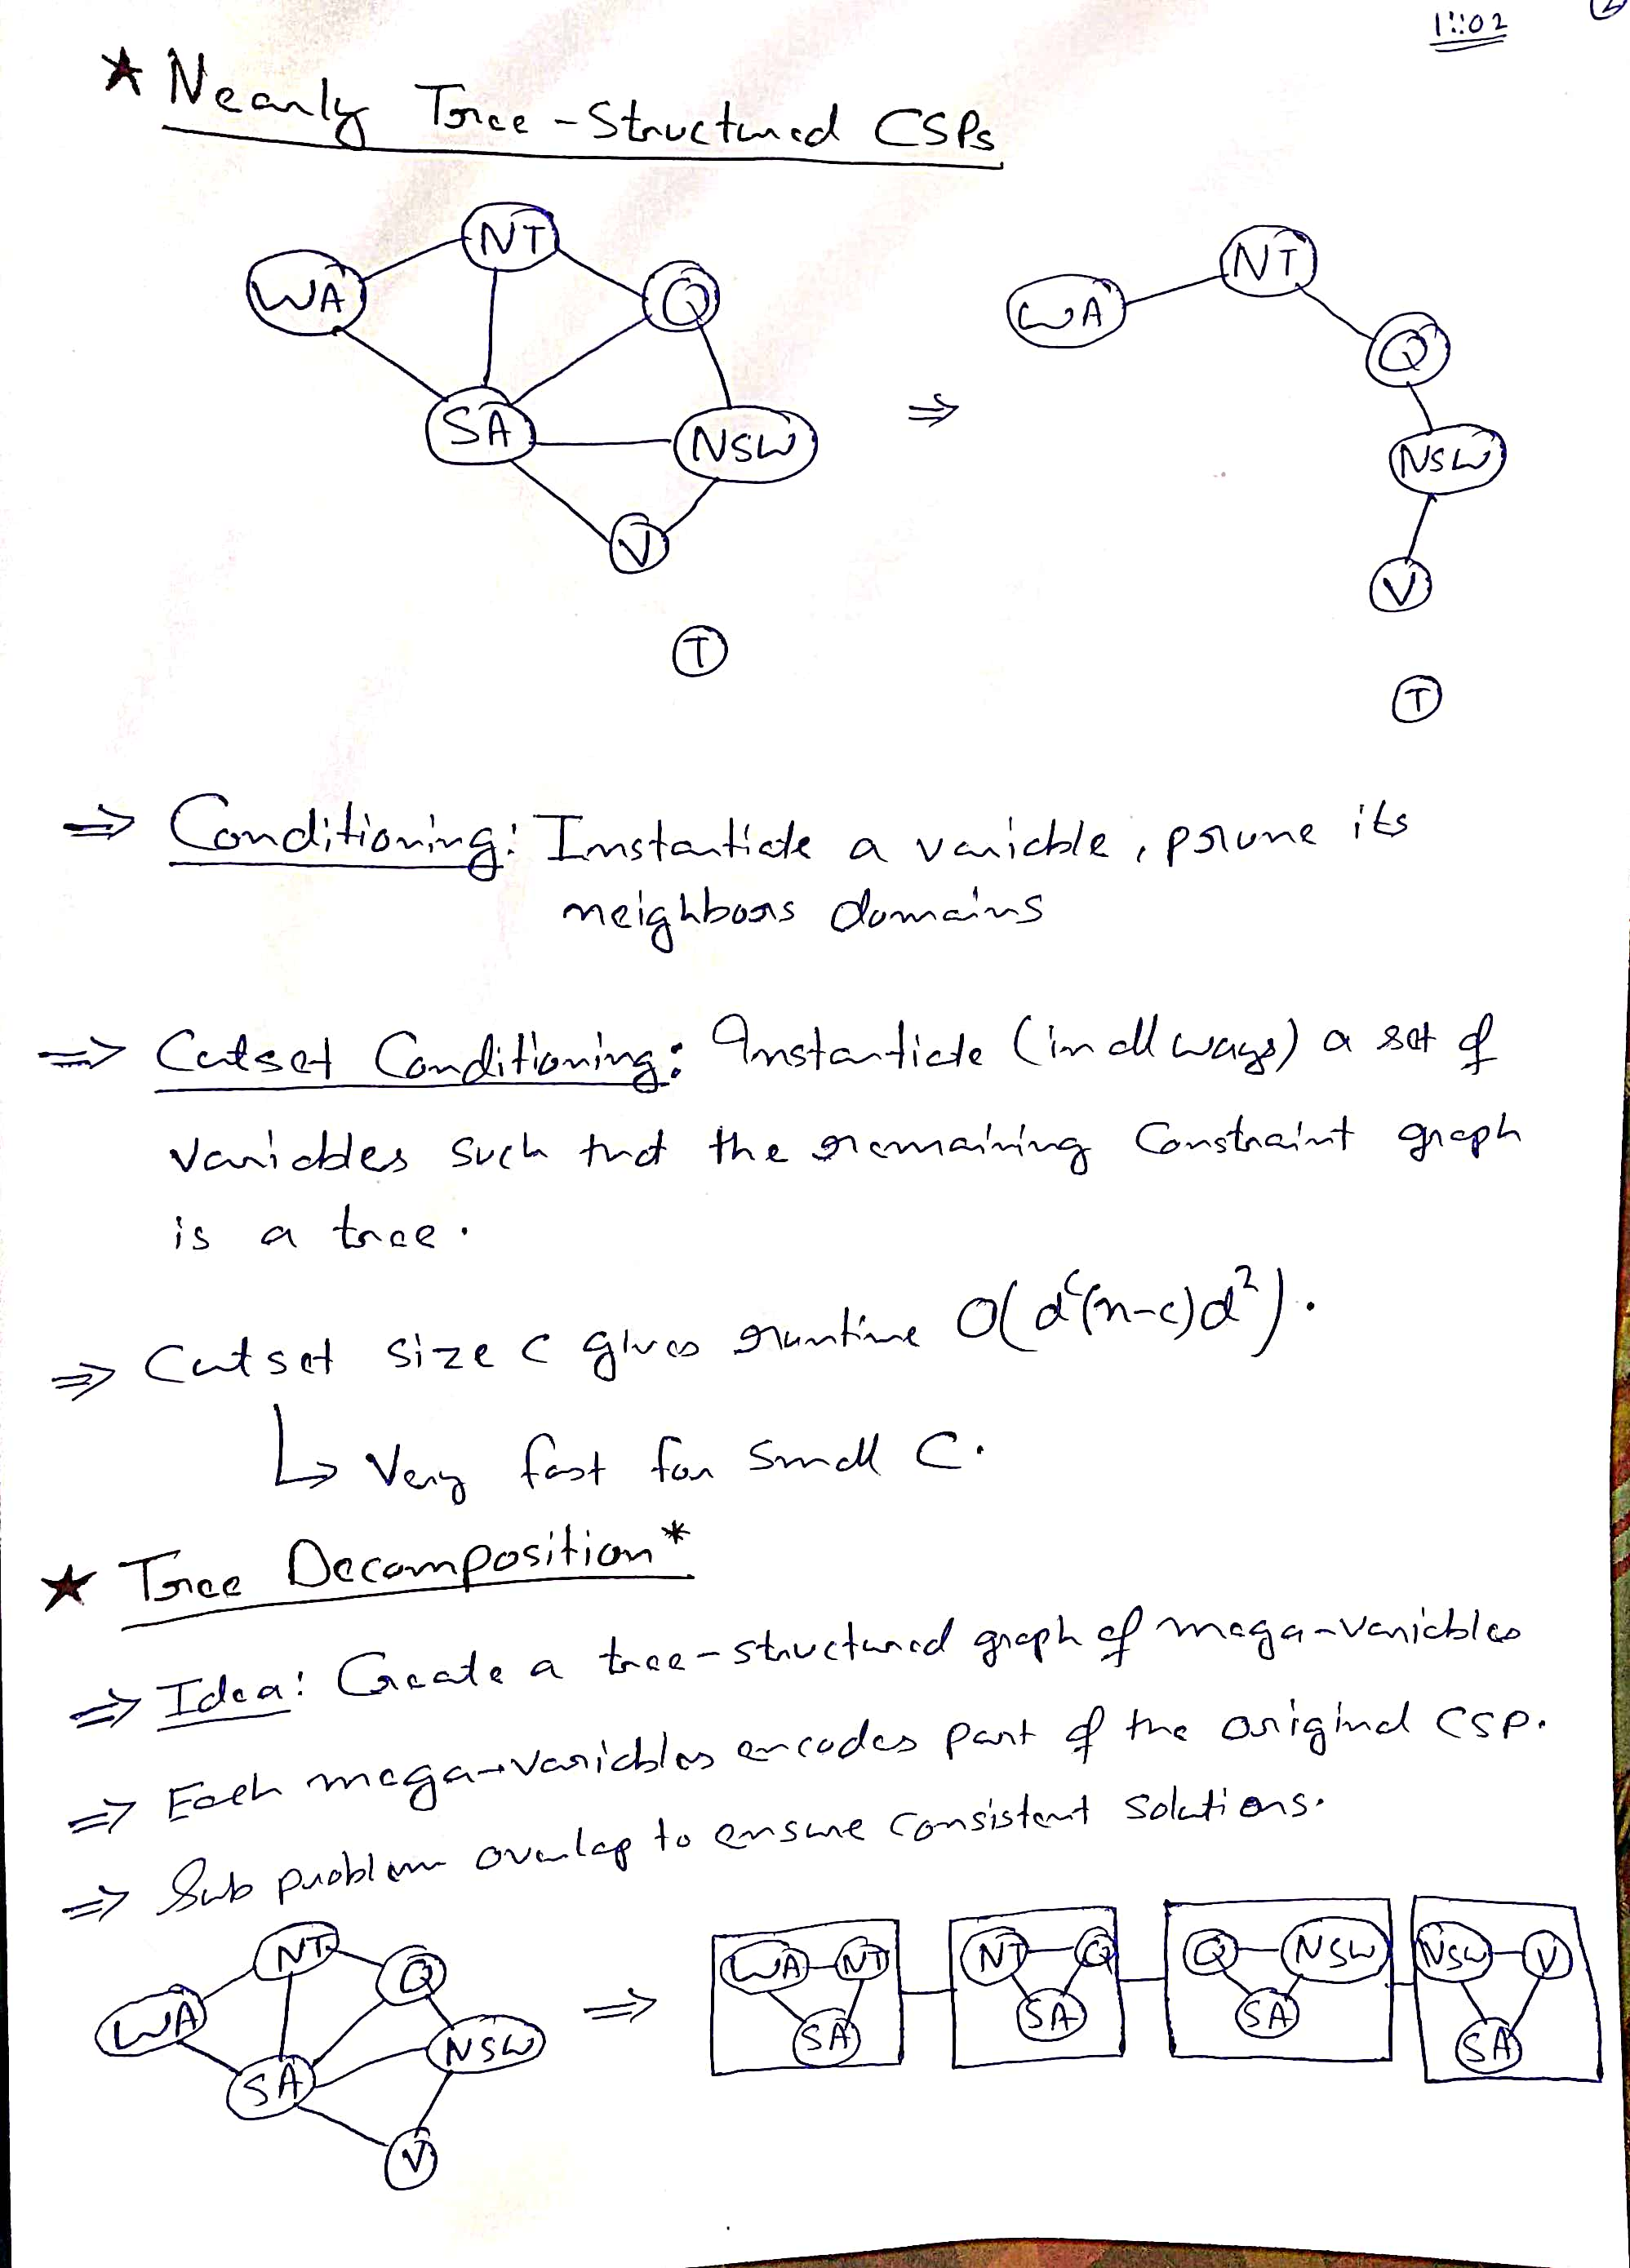 1::02
★ Nearly Tree-Structured CSPs
NT
WA
Q
SA
NSW
V
T
⇒
NT
WA
Q
NSW
V
T
⇒ Conditioning: Instantiate a variable, prune its
neighbors domains
⇒ Cutset Conditioning: Instantiate (in all ways) a set of
variables such that the remaining Constraint graph
is a tree.
⇒ Cutset size c gives runtime O(d^c(n-c)d²).
↳ Very fast for small C.
★ Tree Decomposition*
⇒ Idea: Create a tree-structured graph of mega-variables
⇒ Each mega-variables encodes part of the original CSP.
⇒ Sub problem overlap to ensure consistent solutions.
NT
Q
WA
NSW
SA
V
⇒
WA NT
SA
NT Q
SA
Q NSW
SA
NSW V
SA